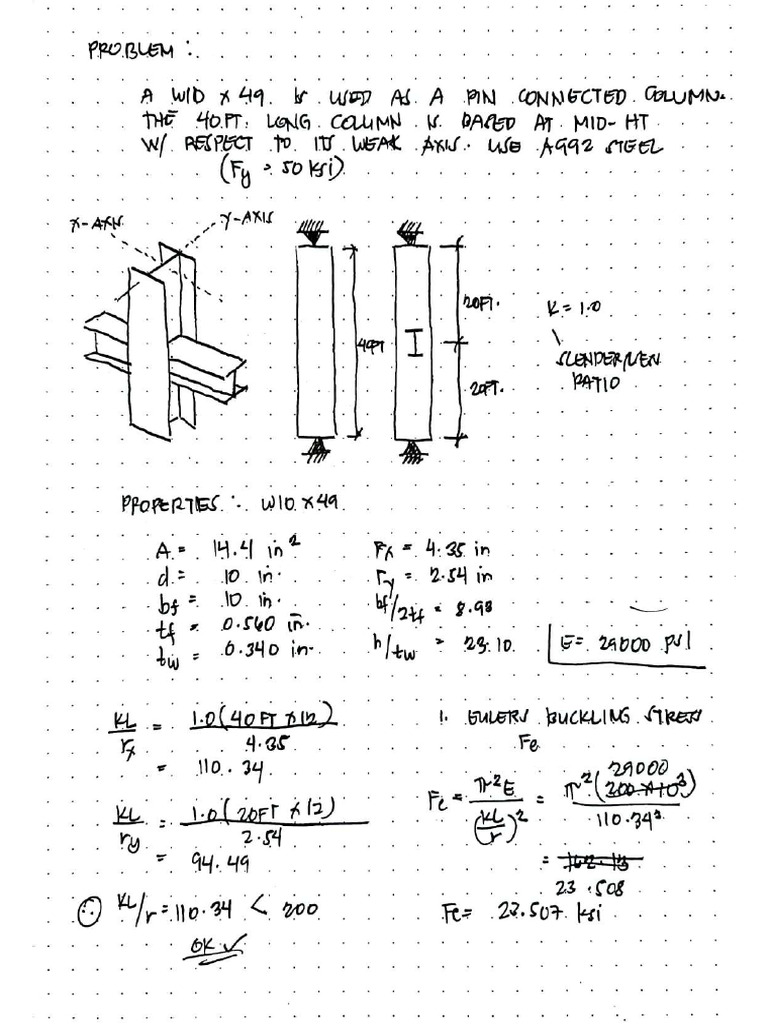 PROBLEM :
A W10 x 49 IS USED AS A PIN CONNECTED COLUMN.
THE 40FT. LONG COLUMN IS BASED AT MID-HT
W/ RESPECT TO ITS WEAK AXIS. USE A992 STEEL
(Fy = 50 ksi)
X-AXIS
Y-AXIS
20FT.
K = 1.0
SLENDERNESS
RATIO
20FT.
PROPERTIES : W10 x 49
A = 14.4 in²
d = 10 in.
bf = 10 in.
tf = 0.560 in.
tw = 0.340 in.
rx = 4.35 in
ry = 2.54 in
bf/2tf = 8.93
h/tw = 23.10
E = 29000 psi
KL/rx = 1.0(40FT x 12)/4.35
= 110.34
KL/ry = 1.0(20FT x 12)/2.54
= 94.49
∴ KL/r = 110.34 < 200
OK ✓
1. EULERS BUCKLING STRESS
Fe
29000
Fe = π²E/(KL/r)² = π²(200x10³)/110.34²
23.508
Fe = 23.507 ksi